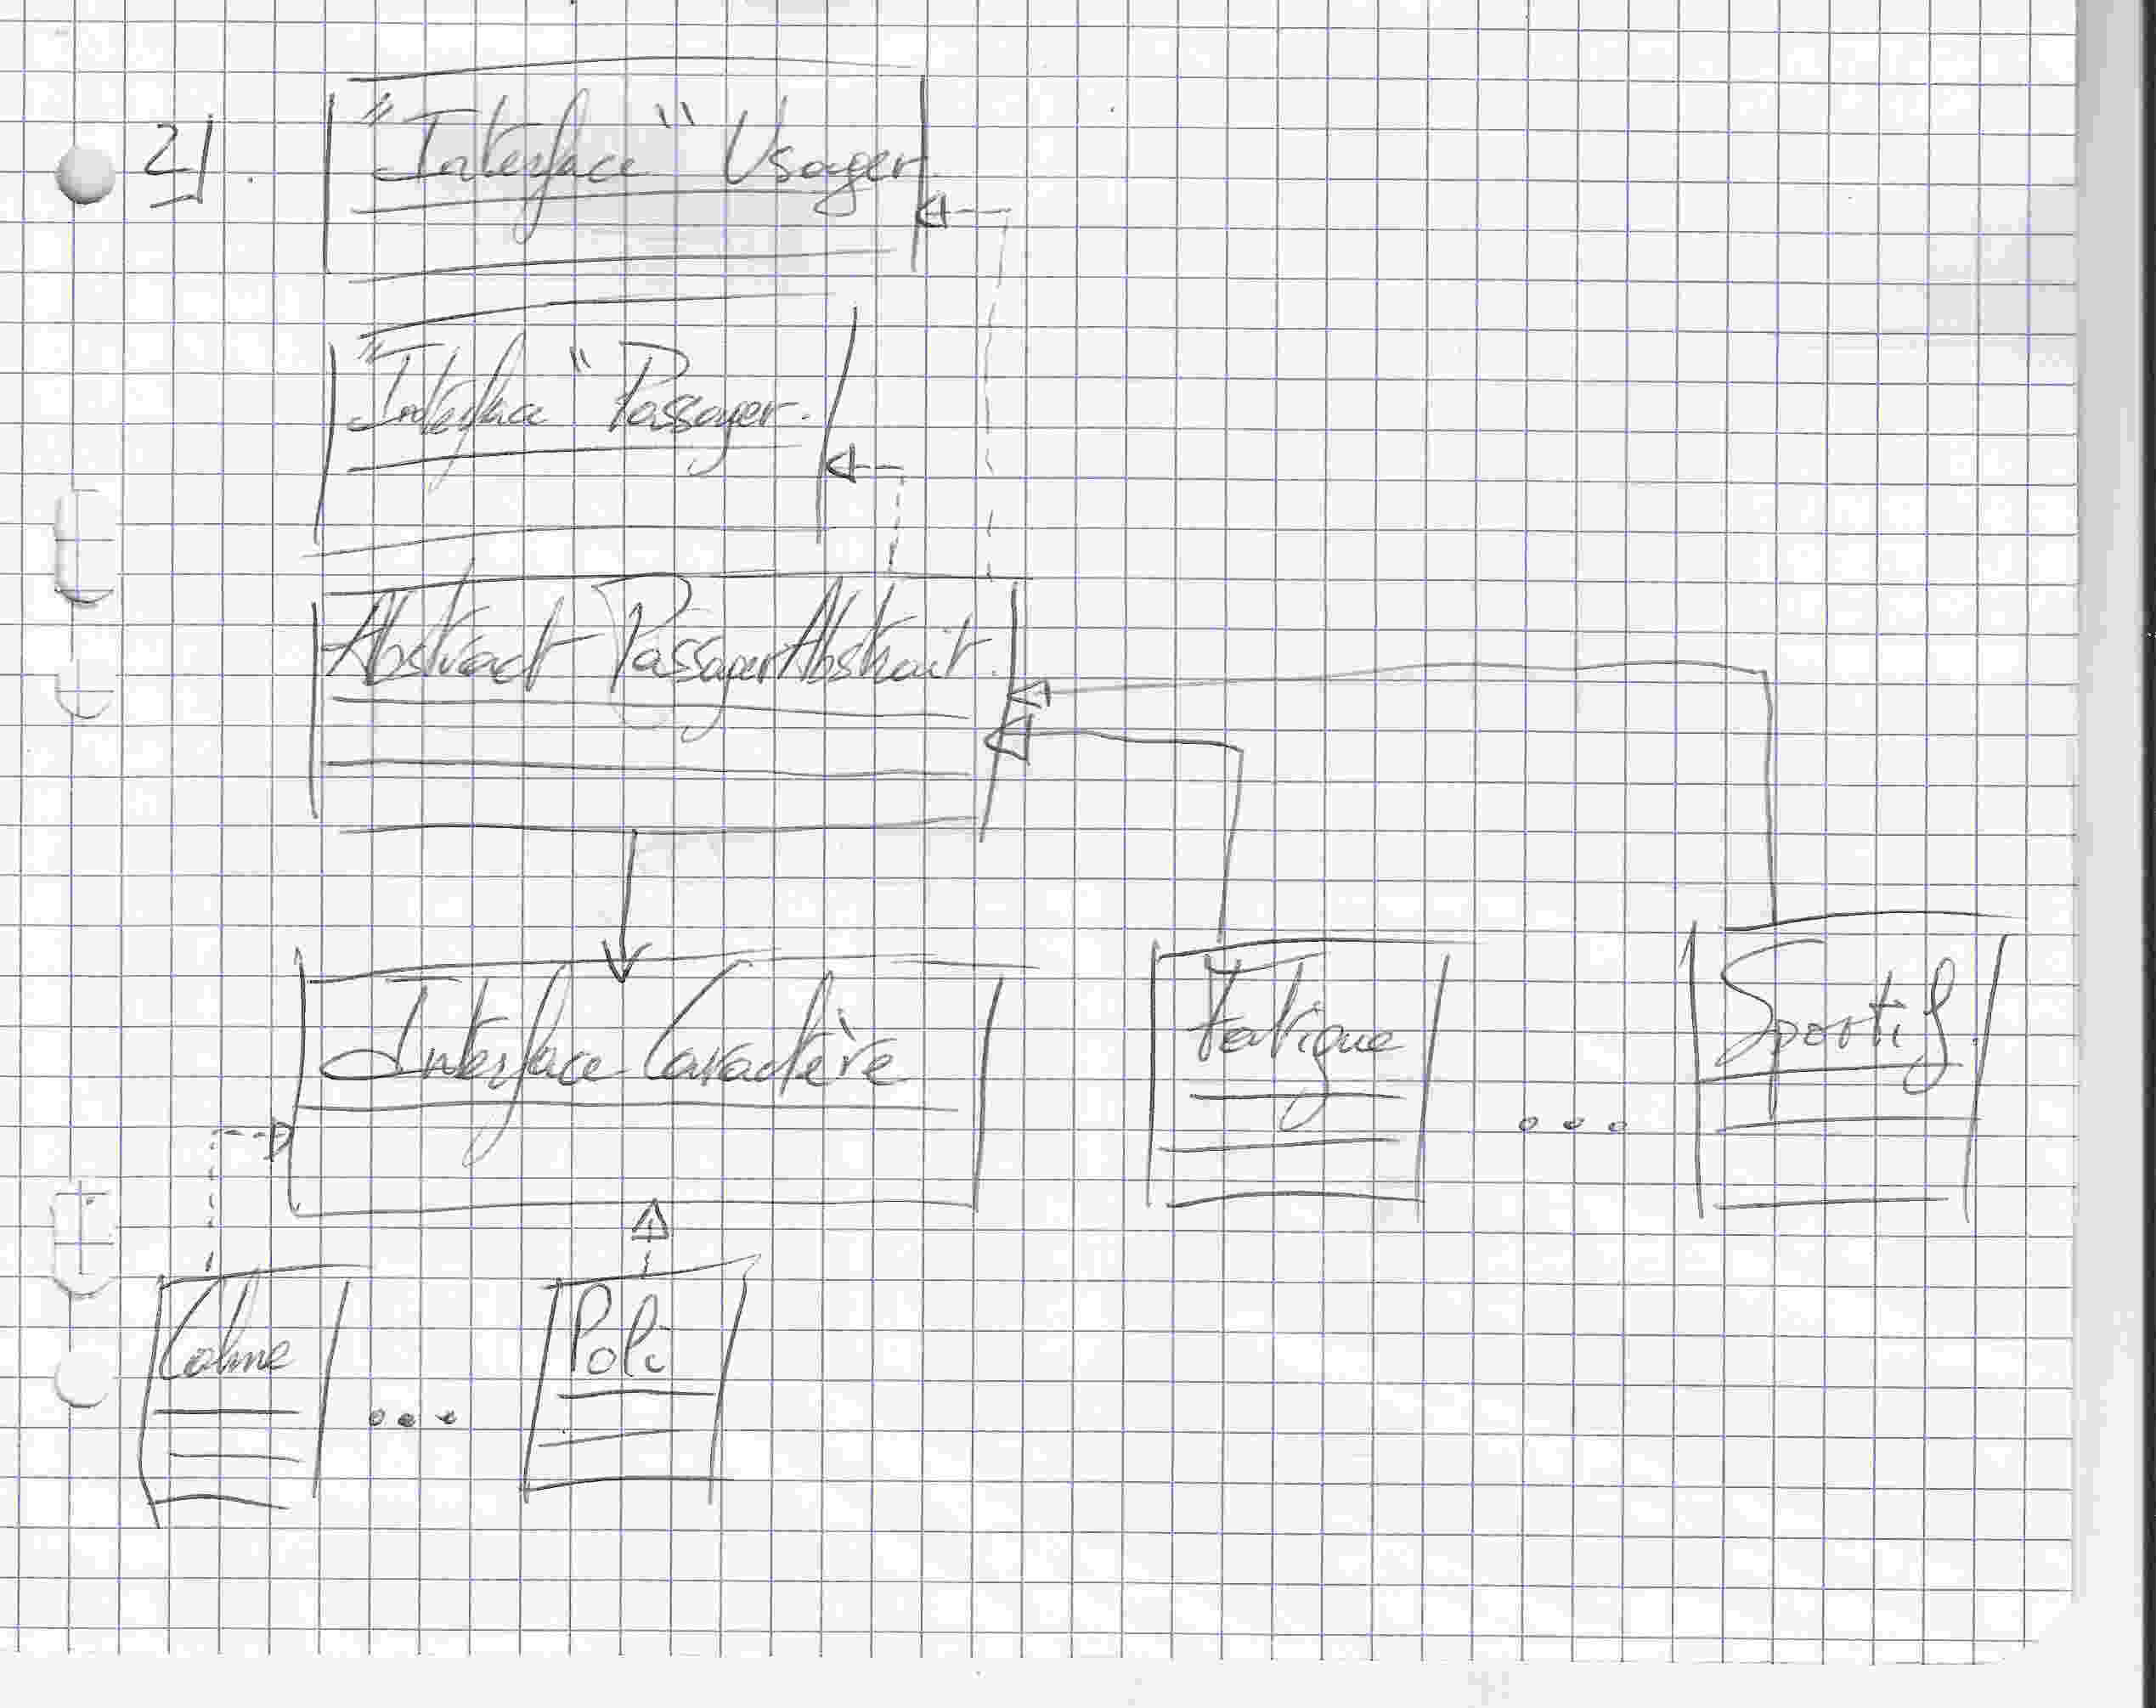 2/
"Interface" Usager
"Interface" Passager.
Abstract PassagerAbstrait.
Interface Caractère
Fatigue
...
Sportif.
Calme
...
Poli